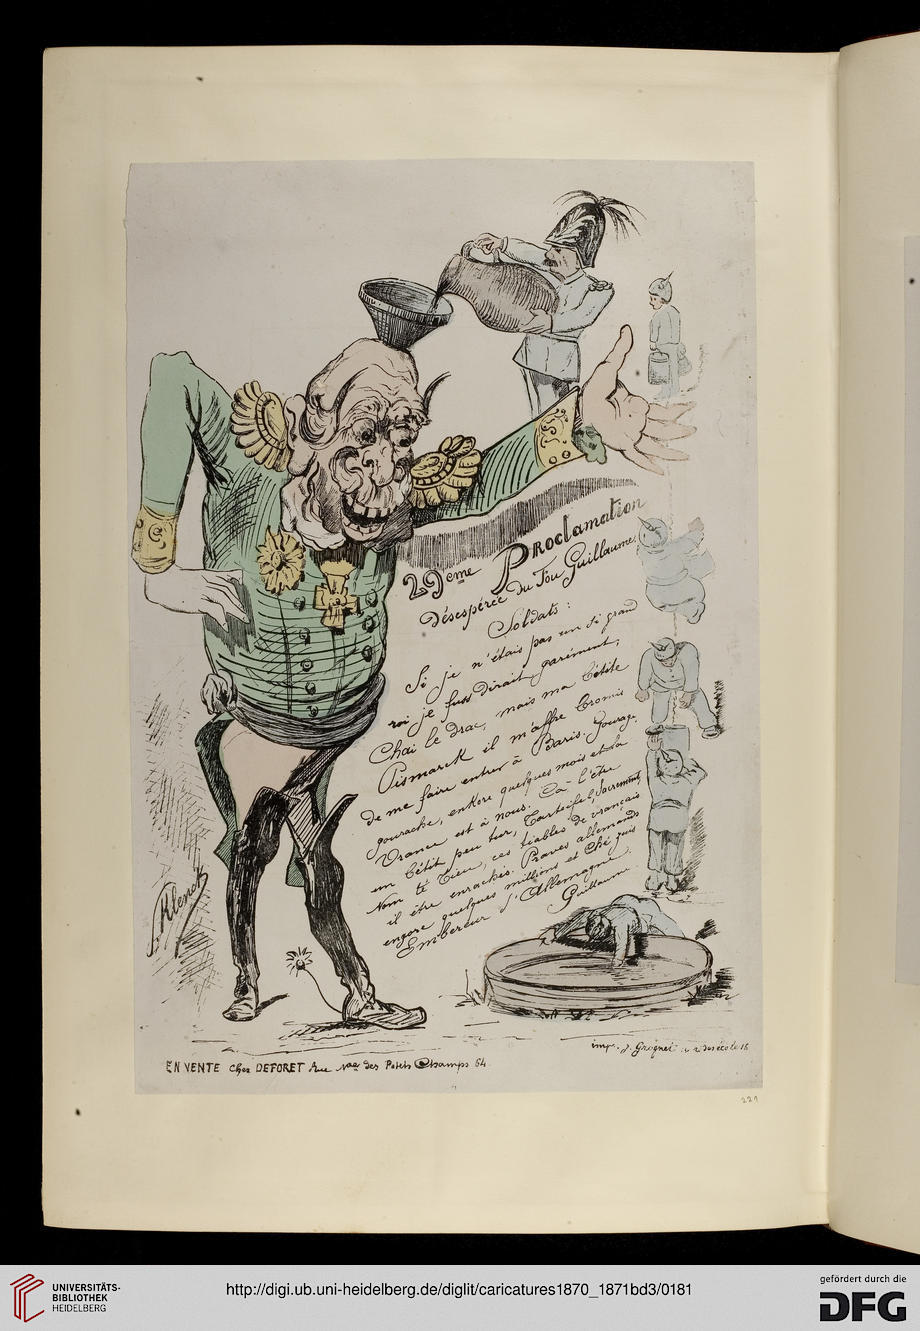 29eme Proclamation
Désespérée du Fou Guillaume
Soldats:
Si je n'étais pas un si grand
roi je fus dirait garément,
Chai le drac, mais ma bétite
Pismarck il m'affre bromis
de me faire entrer à Baris. Gourage,
gourache, enkore quelques mois et la
Vrance est à nous. Ça à l'être
un bétit peu tur, Tarteifel, Sacrement,
Nom té Tieu, ces tiables de vrançais
il être enrachés. Praves allemands
engore quelques millions et Ché suis
Embereur d'Allemagne
Guillaume
J. Klenck
imp. J. Grognet
EN VENTE chez DEFORET Rue Nve des Petits Champs 64.
221
UNIVERSITÄTS-
BIBLIOTHEK
HEIDELBERG
http://digi.ub.uni-heidelberg.de/diglit/caricatures1870_1871bd3/0181
gefördert durch die
DFG